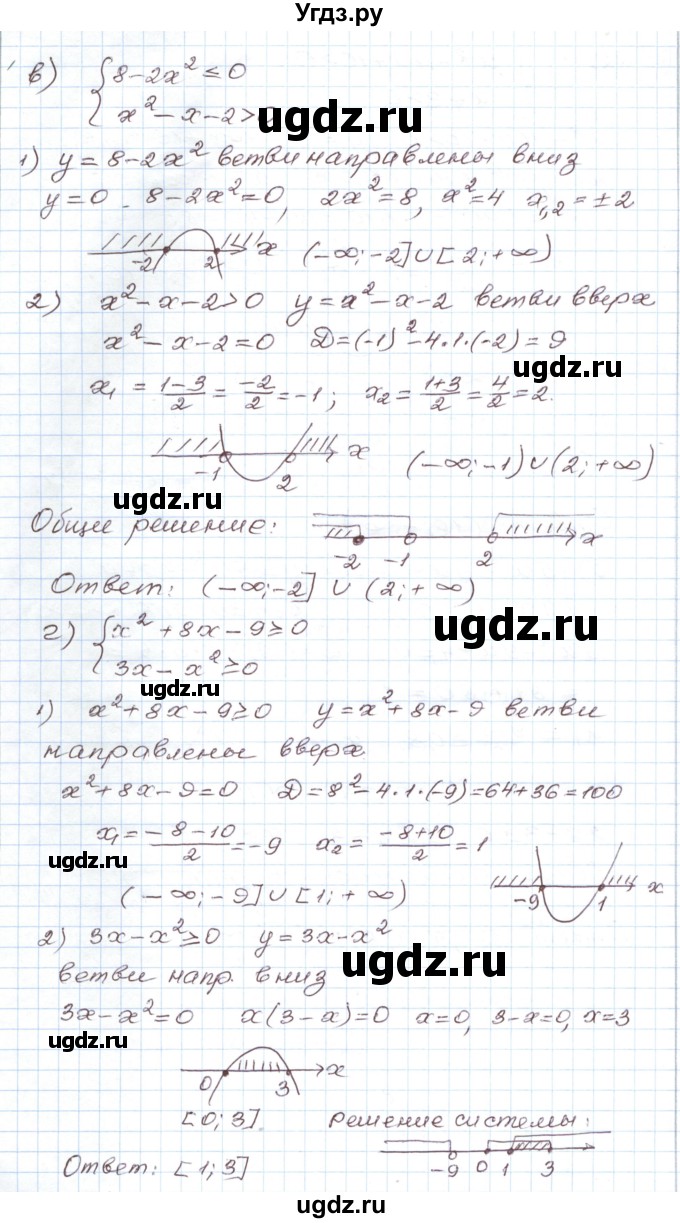 Угдз.ру
в) { 8-2x² ≤ 0
x² - x - 2 > 0
ugdz.ru
1) y = 8-2x² ветви направлены вниз
y=0 . 8-2x²=0, 2x²=8, x²=4 x₁,₂ = ±2
-2 2 x (-∞; -2] ∪ [2; +∞)
2) x²-x-2>0 y = x²-x-2 ветви вверх
x²-x-2=0 D=(-1)²-4·1·(-2) = 9
ugdz.ru
x₁ = (1-3)/2 = -2/2 = -1; x₂ = (1+3)/2 = 4/2 = 2.
-1 2 x (-∞; -1) ∪ (2; +∞)
ugdz.ru
Общее решение: -2 -1 2 x
Ответ: (-∞; -2] ∪ (2; +∞)
г) { x² + 8x - 9 ≥ 0
ugdz.ru
3x - x² ≥ 0
ugdz.ru
1) x²+8x-9≥0 y = x²+8x-9 ветви
направлены вверх
x²+8x-9=0 D = 8²-4·1·(-9)=64+36=100
x₁ = (-8-10)/2 = -9 x₂ = (-8+10)/2 = 1
ugdz.ru
(-∞; -9] ∪ [1; +∞) -9 1 x
2) 3x-x²≥0 y = 3x-x²
ugdz.ru
ветви напр. вниз
3x-x²=0 x(3-x)=0 x=0, 3-x=0, x=3
ugdz.ru
0 3 x
[0; 3] Решение системы:
-9 0 1 3
Ответ: [1; 3]
ugdz.ru